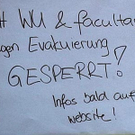 # WU & facultas
gen Evakuierung
GESPERRT!
Infos bald auf
website!